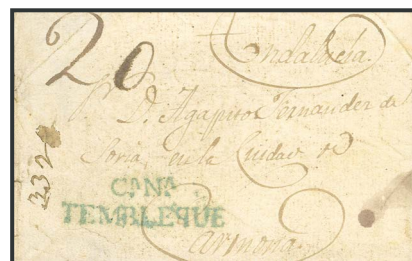 20
Andalucia.
Sr. D. Agapito Fernandez de
Soria, en la Ciudad de
CANA
TEMBLEQUE
Carmona